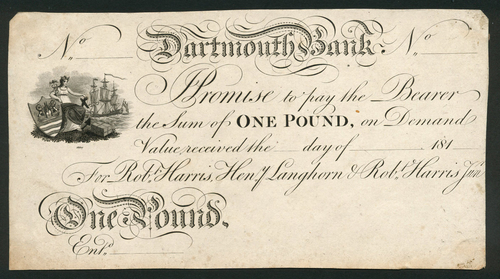 No Dartmouth Bank. No
I Promise to pay the Bearer
the Sum of ONE POUND, on Demand
Value received the day of 181
For Robt. Harris, Heny. Langhorn & Robt. Harris Junr.
One Pound.
Entd.